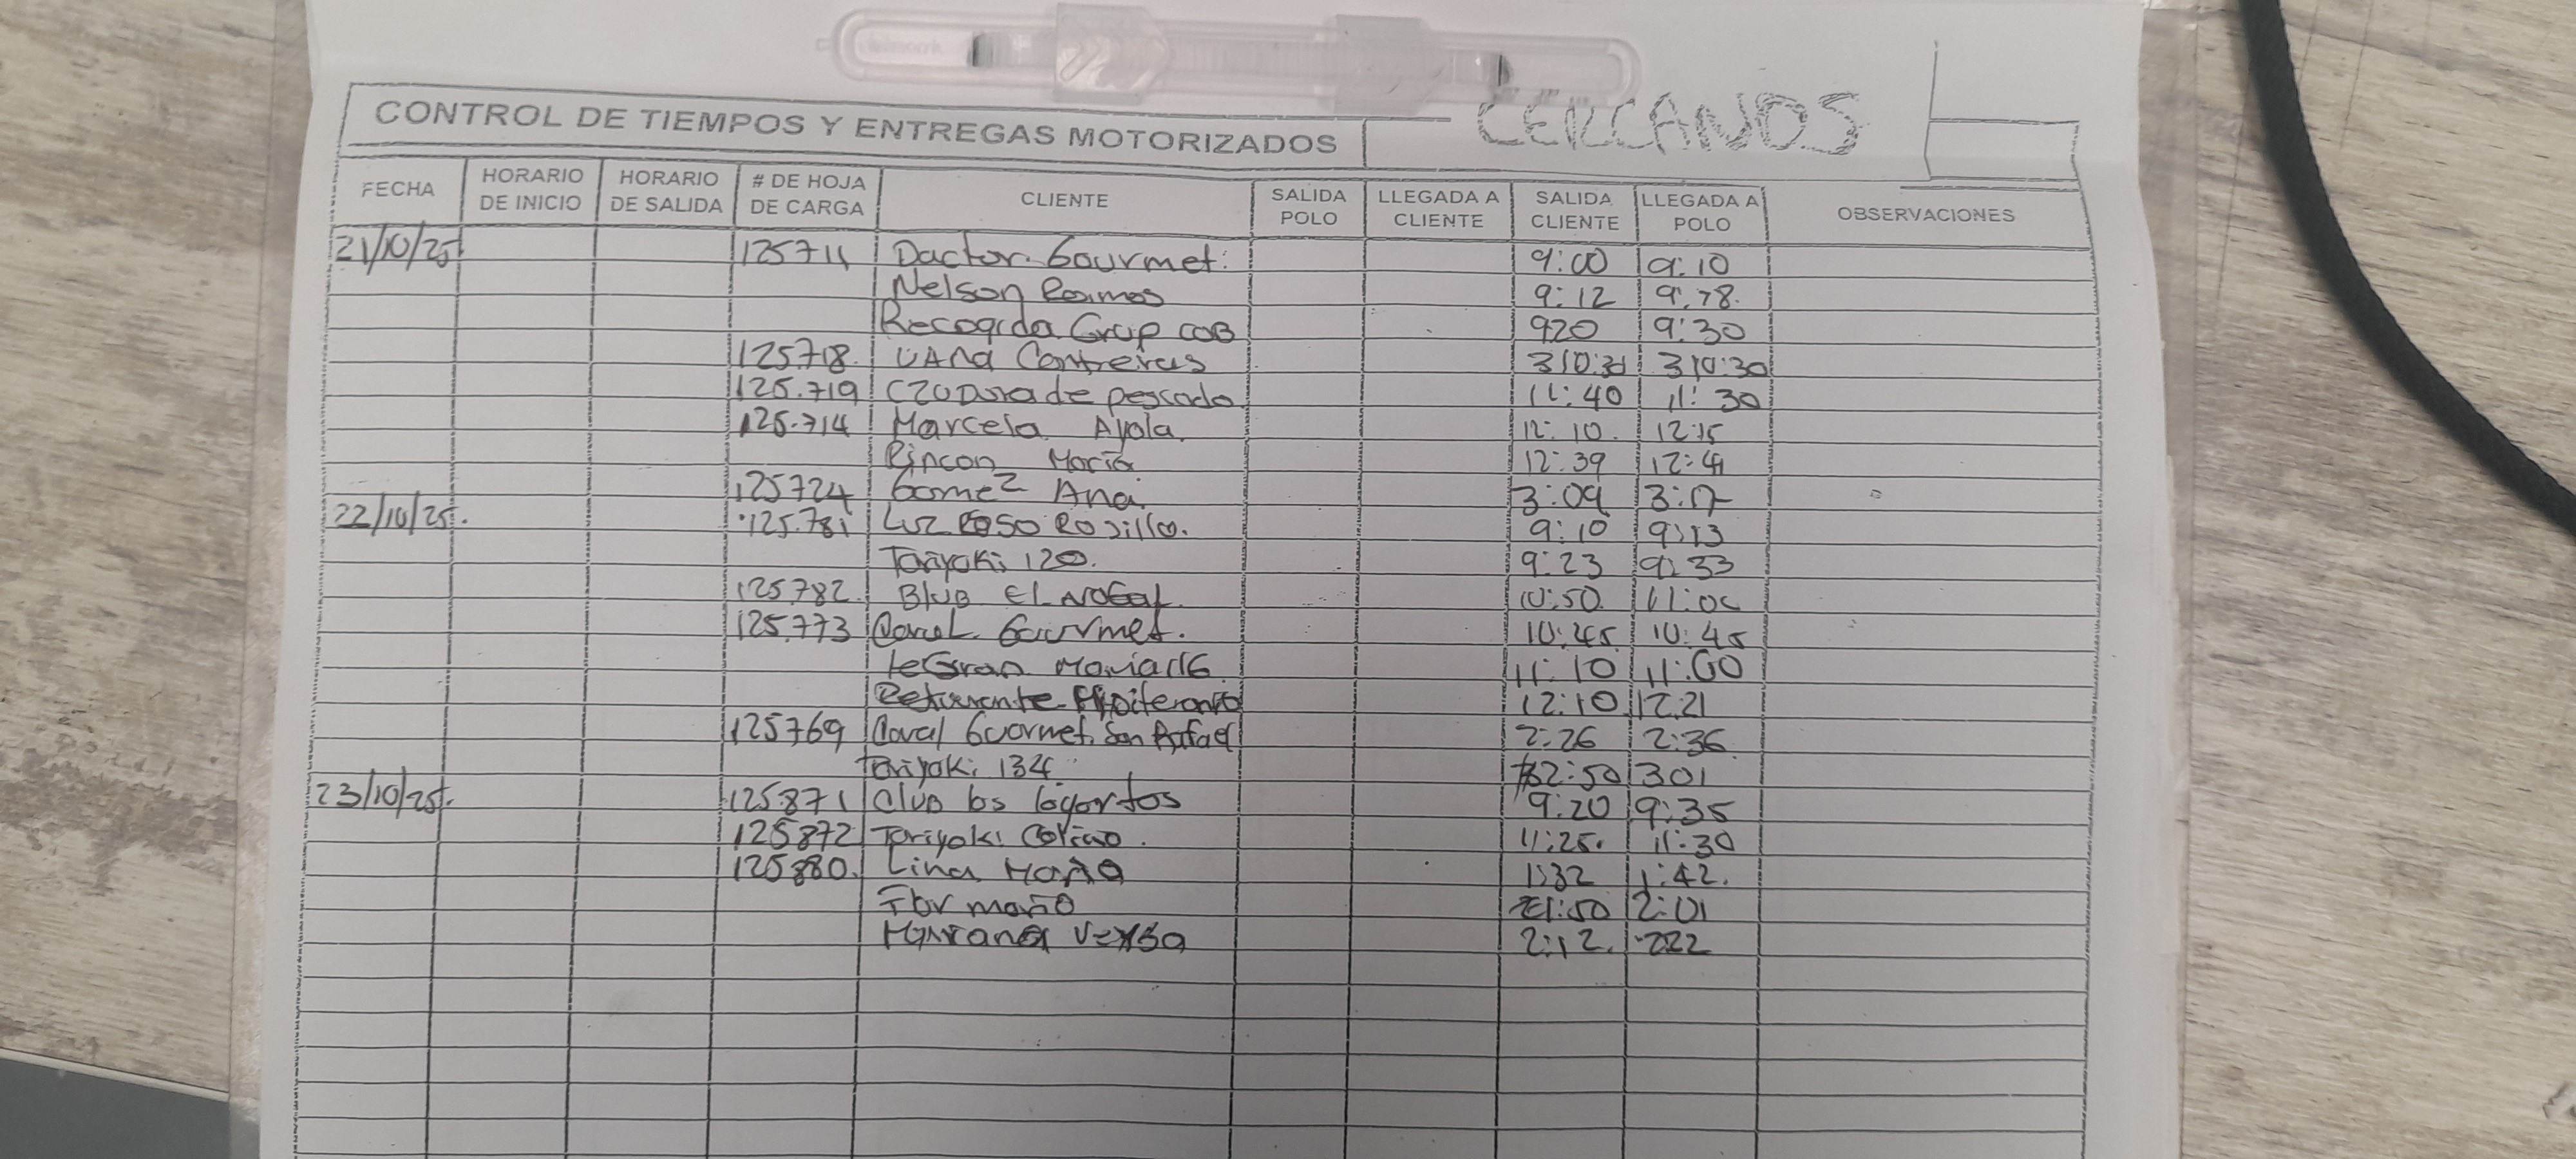 CERCANOS
CONTROL DE TIEMPOS Y ENTREGAS MOTORIZADOS
FECHA HORARIO DE INICIO HORARIO DE SALIDA # DE HOJA DE CARGA CLIENTE SALIDA POLO LLEGADA A CLIENTE SALIDA CLIENTE LLEGADA A POLO OBSERVACIONES
21/10/25 125711 Doctor. Gourmet. 9:00 9:10
Nelson Ramos 9:12 9:18.
Recogida Grup COB 920 9:30
125.718. Contreras 310:30 310:30
125.719 de pescado 11:40 11:30
125.714 Marcela Ayola. 12:10. 12:15
Rincon Maria 12:39 12:41
125724 Gomez Ana. 3:09 3:17
22/10/25. 125.781 Luz Rosillo. 9:10 9:13
Tariyaki 120. 9:23 9:33
125.782. El Nogal. 10:50.
125.773 Gourmet. 10:45 10:45
11:10 11:00
12:10 12:21
125769 Gourmet. San Rafael 2:26 2:36
Tariyaki 134. 2:50 301
23/10/25. 125.871 Club los lagartos 9:20 9:35
125872 Toriyaki 11:25. 11:30
125880. Lina 1:32 1:42.
1:50 2:01
2:12. 222